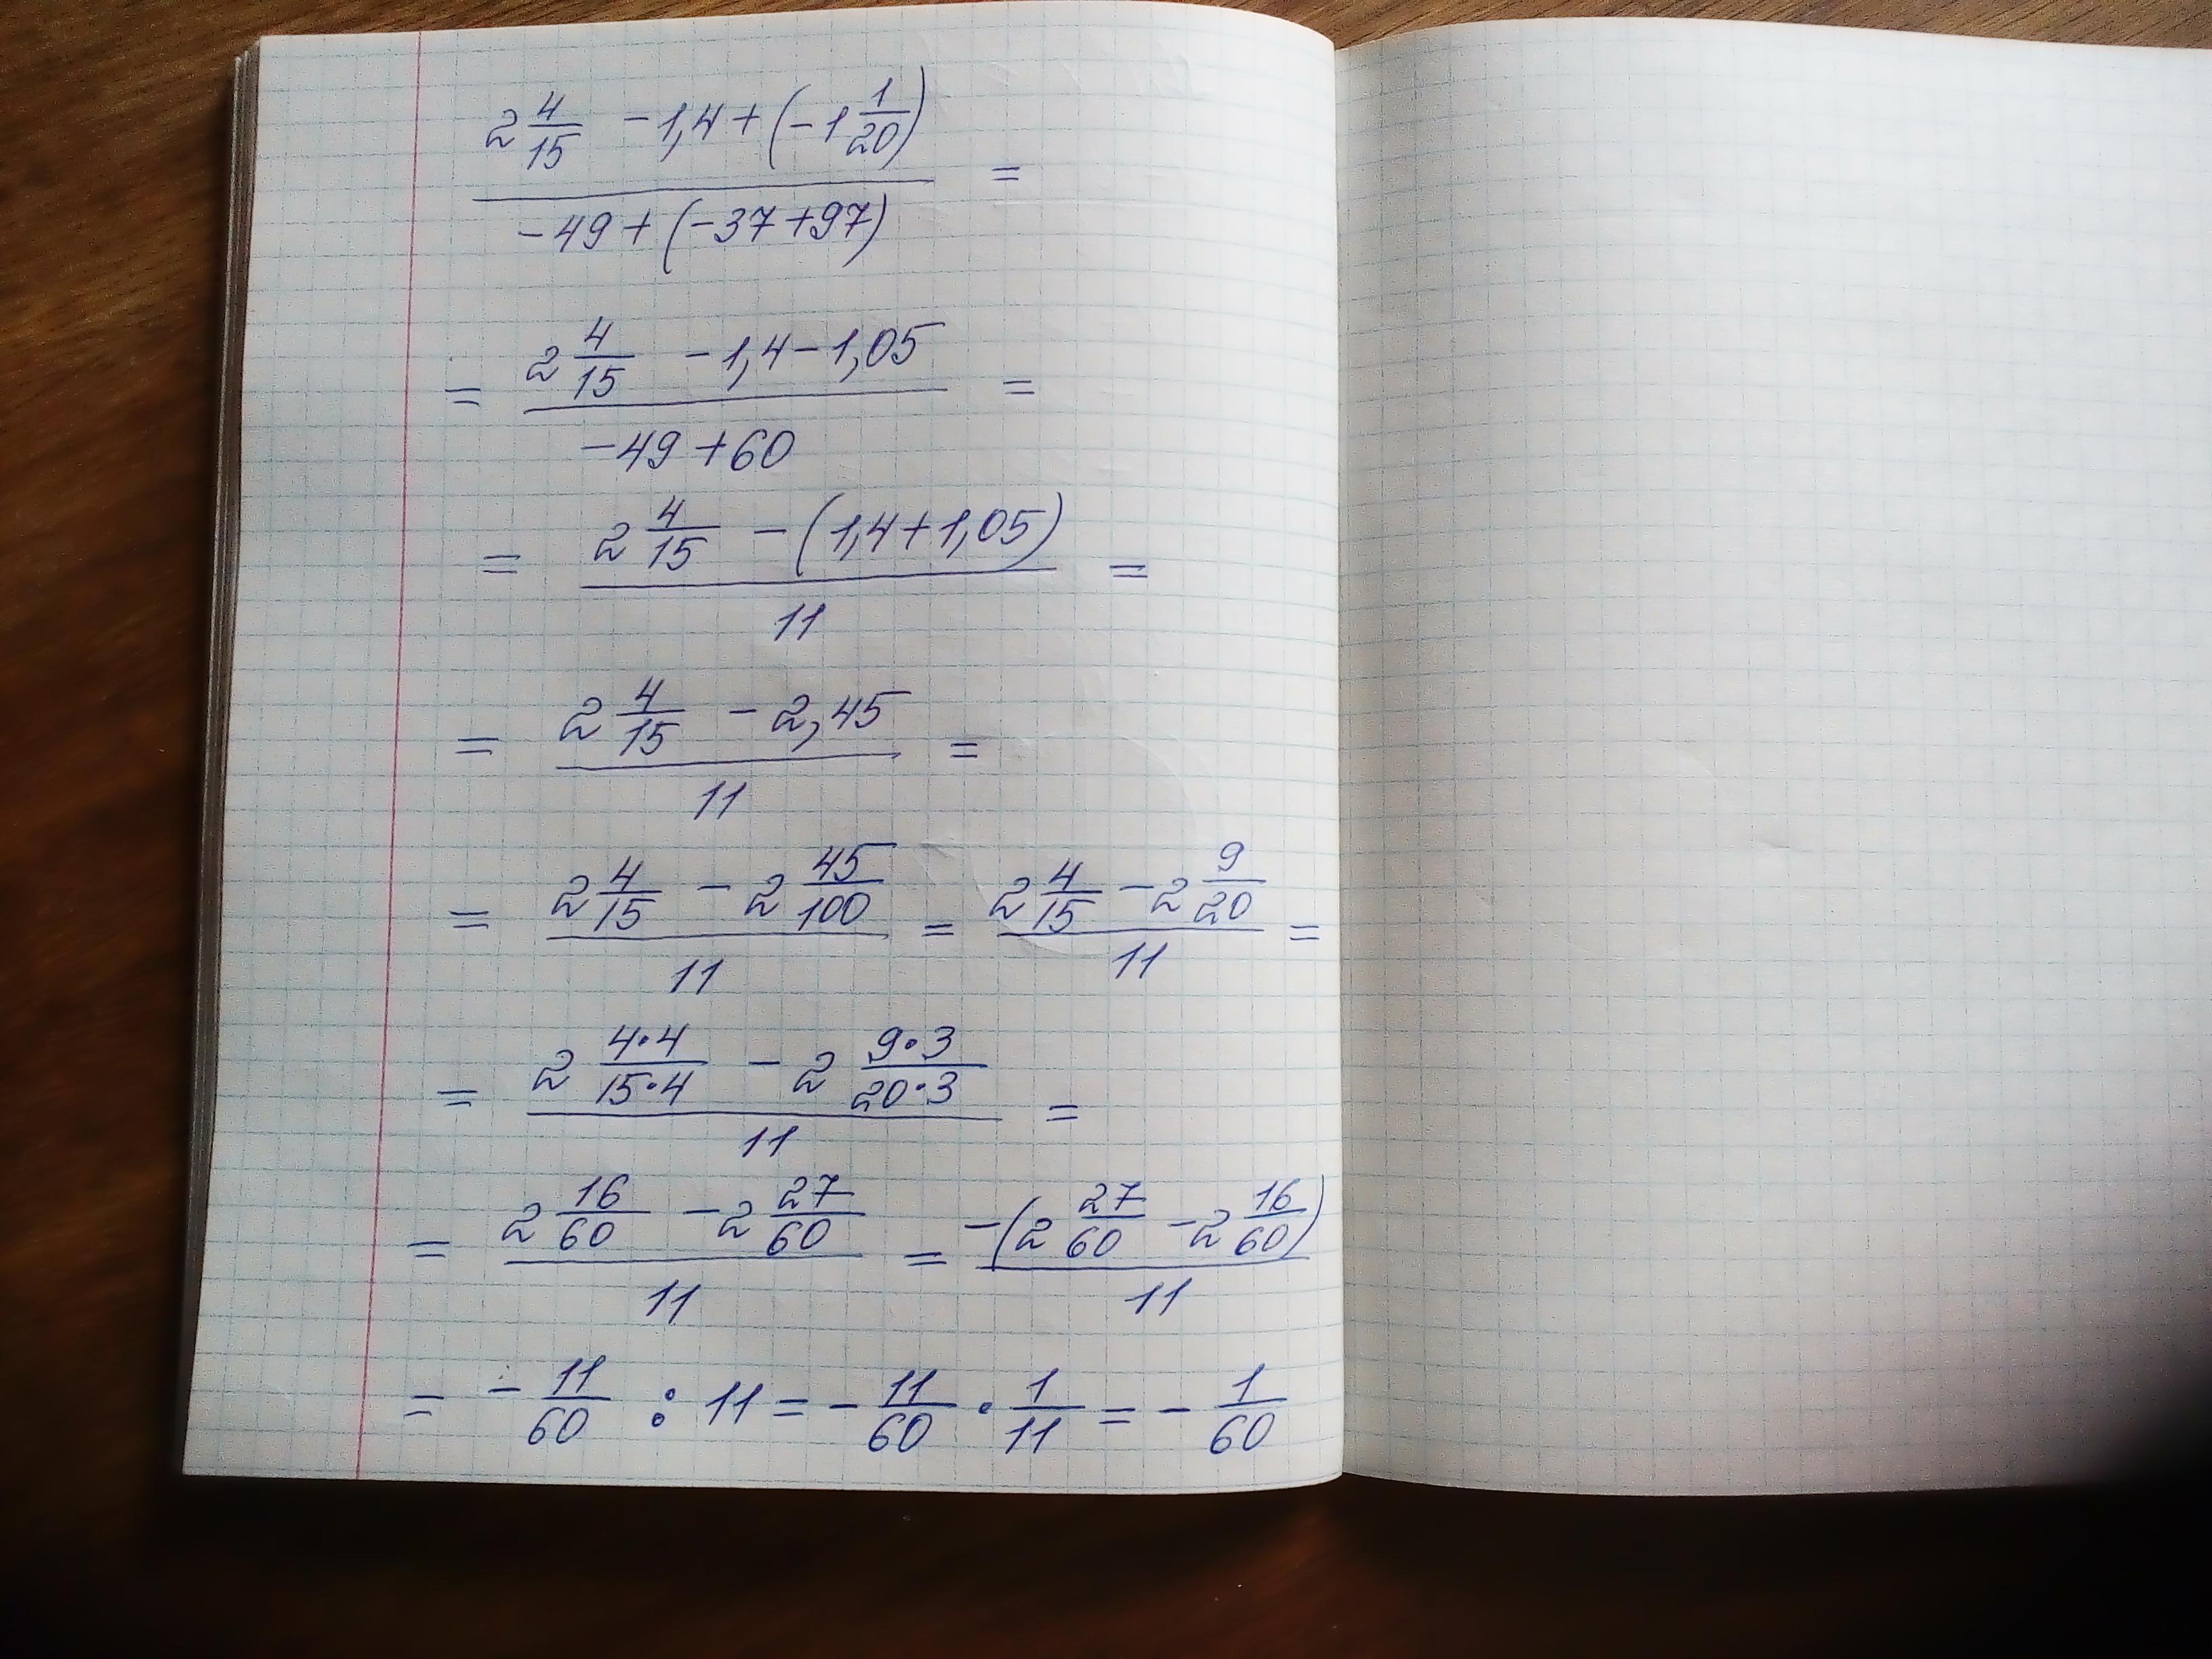 (2 4/15 − 1,4 + (−1 1/20)) / (−49 + (−37 + 97)) =
= (2 4/15 − 1,4 − 1,05) / (−49 + 60) =
= (2 4/15 − (1,4 + 1,05)) / 11 =
= (2 4/15 − 2,45) / 11 =
= (2 4/15 − 2 45/100) / 11 = (2 4/15 − 2 9/20) / 11 =
= (2 (4·4)/(15·4) − 2 (9·3)/(20·3)) / 11 =
= (2 16/60 − 2 27/60) / 11 = −(2 27/60 − 2 16/60) / 11
= − 11/60 : 11 = − 11/60 · 1/11 = − 1/60